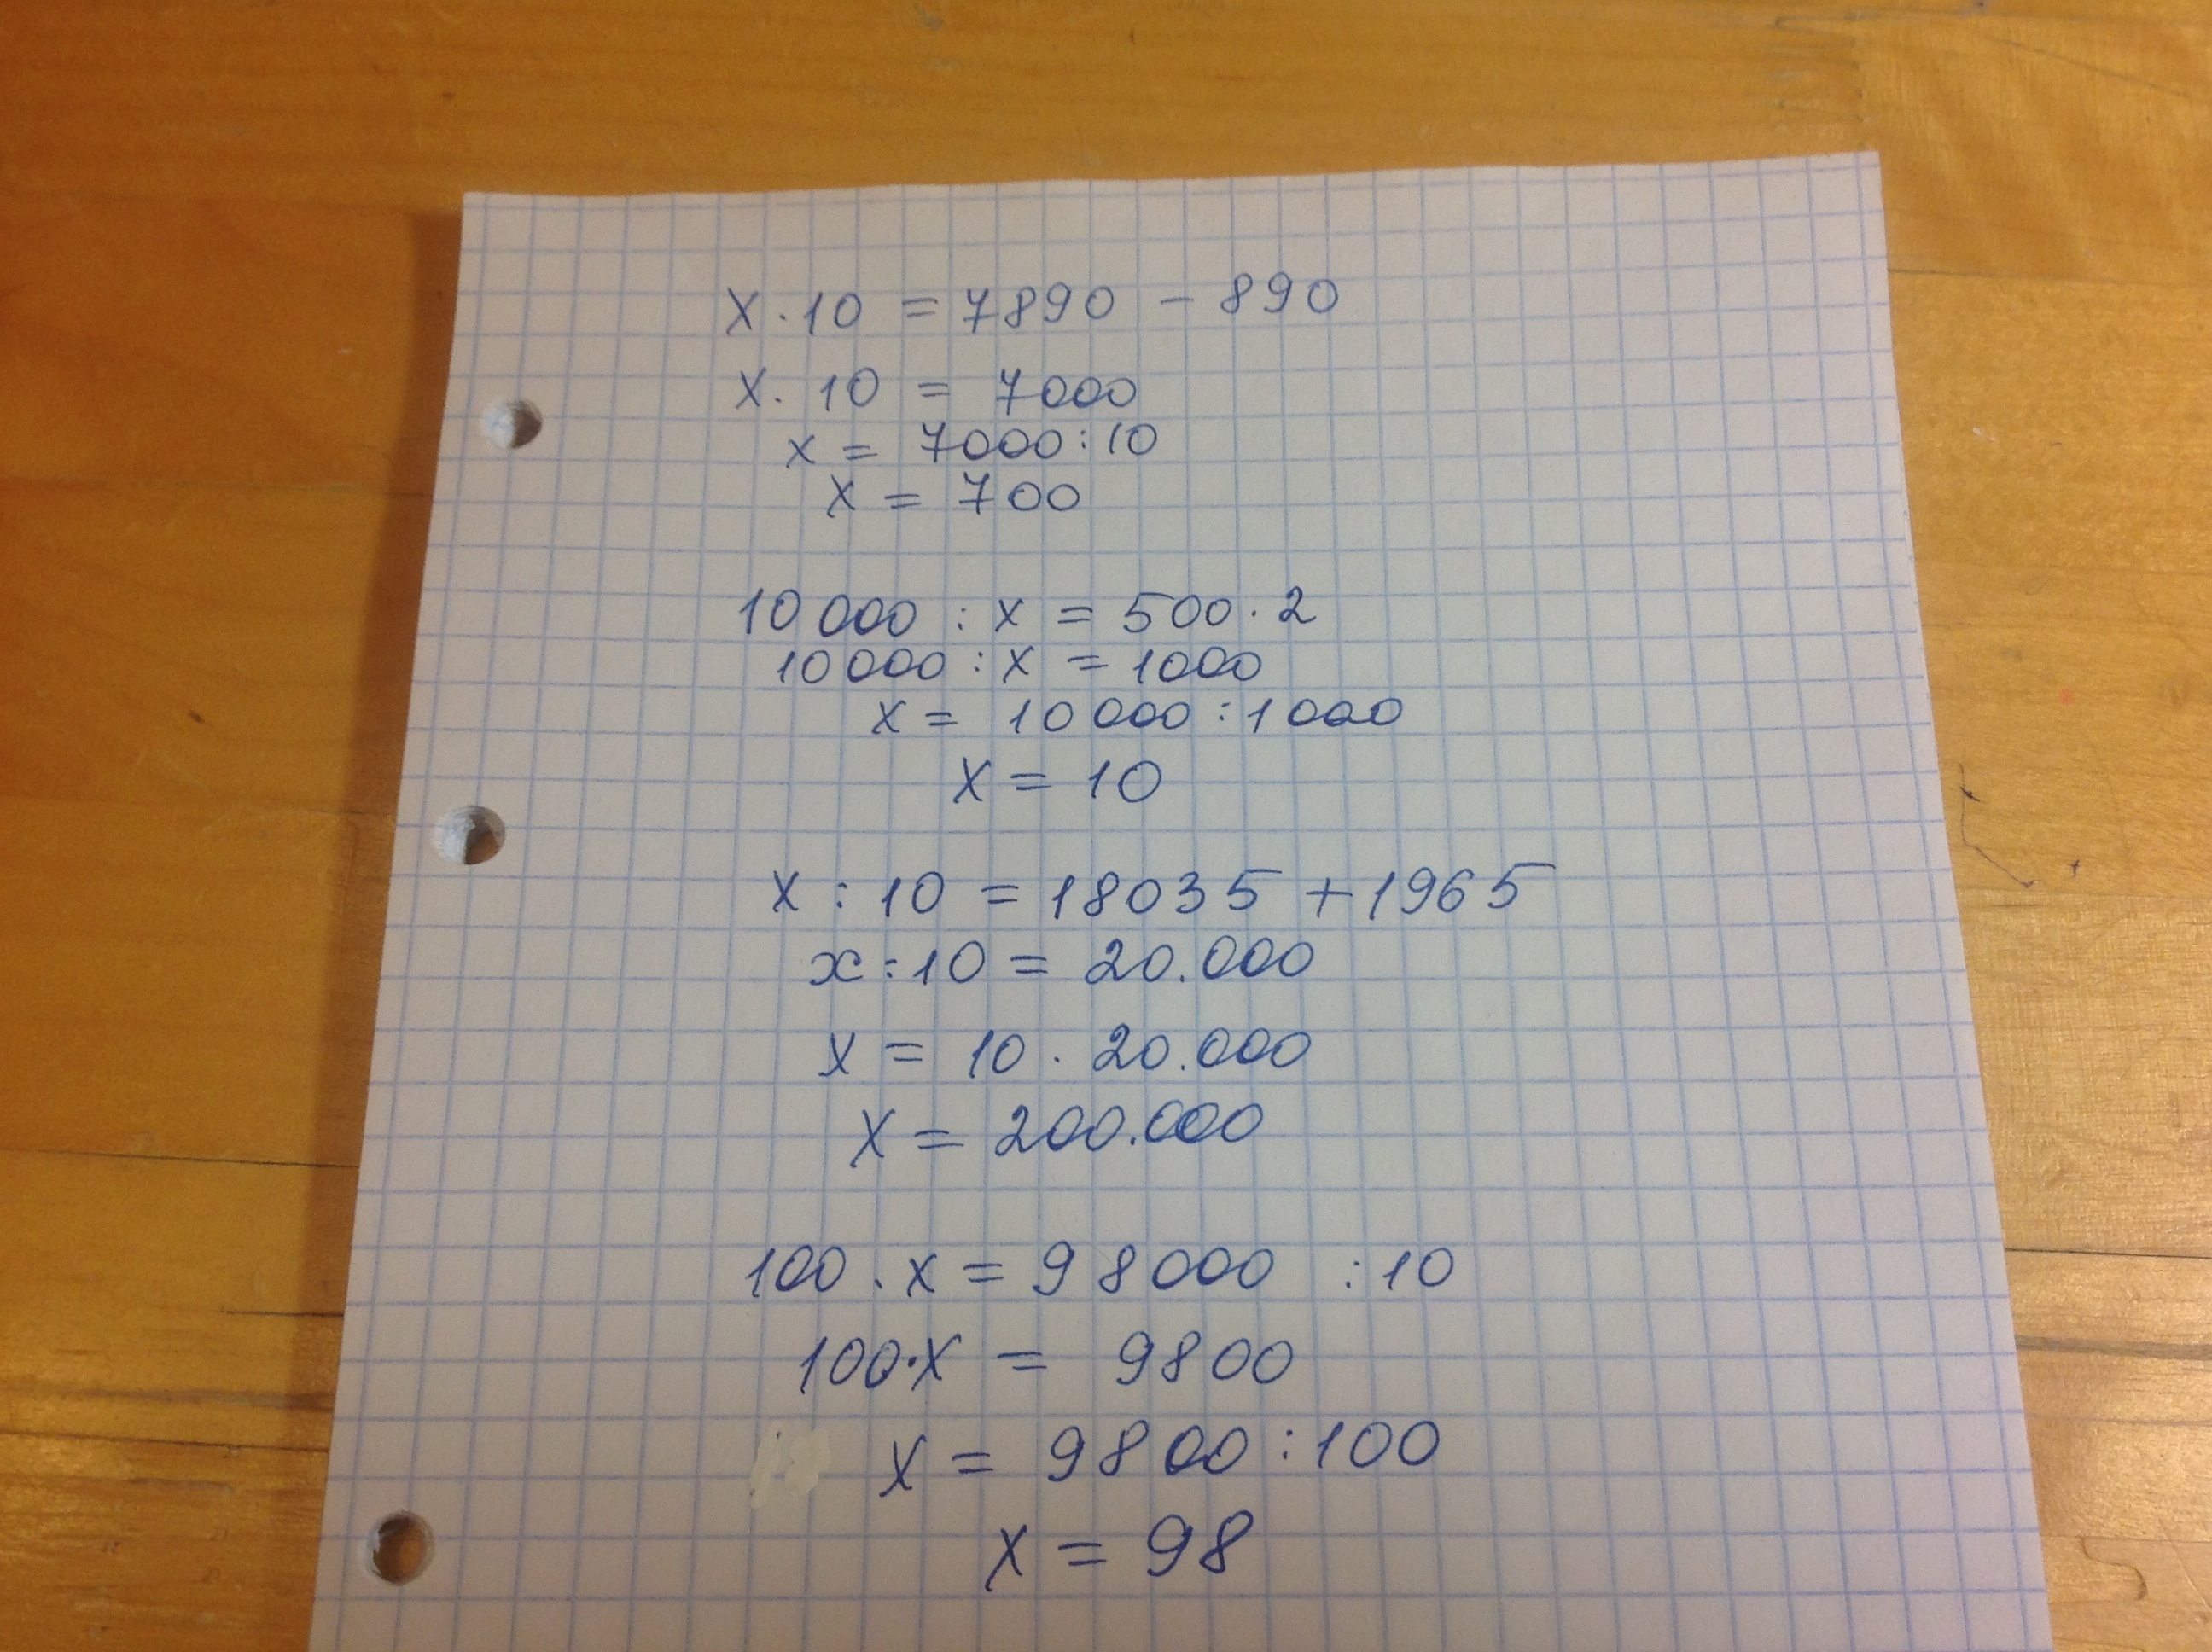 x · 10 = 7890 - 890
x · 10 = 7000
x = 7000 : 10
x = 700
10 000 : x = 500 · 2
10 000 : x = 1000
x = 10 000 : 1000
x = 10
x : 10 = 18035 + 1965
x : 10 = 20.000
x = 10 · 20.000
x = 200.000
100 · x = 98000 : 10
100 · x = 9800
x = 9800 : 100
x = 98